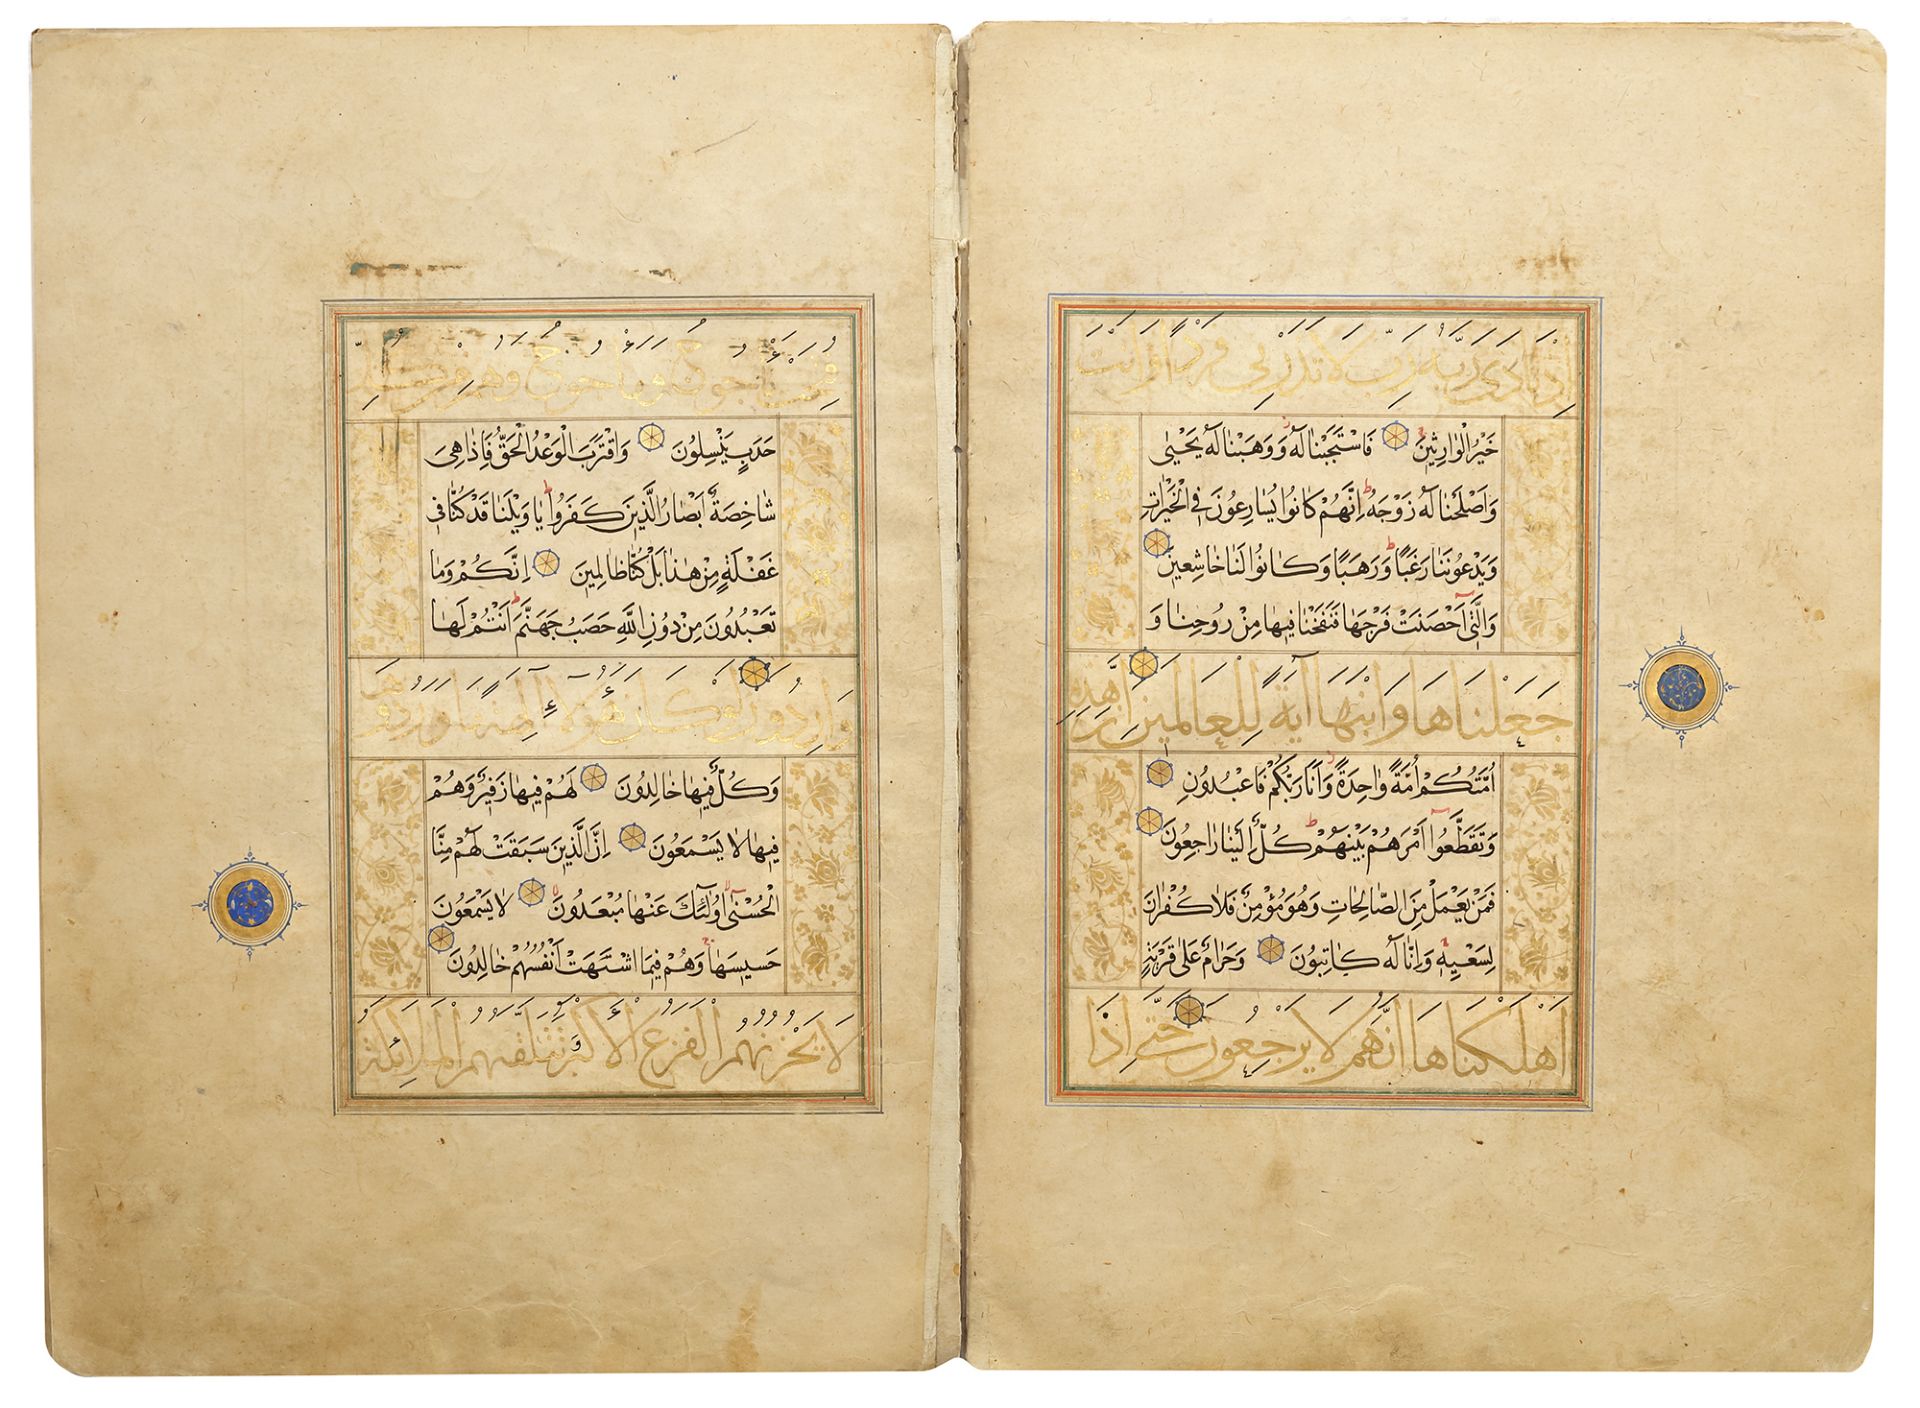 اِذْ نَادٰى رَبَّهُ رَبِّ لَا تَذَرْنِي فَرْدًا وَاَنْتَ
خَيْرُ الْوَارِثِينَ فَاسْتَجَبْنَا لَهُ وَوَهَبْنَا لَهُ يَحْيٰى
وَاَصْلَحْنَا لَهُ زَوْجَهُ اِنَّهُمْ كَانُوا يُسَارِعُونَ فِي الْخَيْرَاتِ
وَيَدْعُونَنَا رَغَبًا وَرَهَبًا وَكَانُوا لَنَا خَاشِعِينَ
وَالَّتِي اَحْصَنَتْ فَرْجَهَا فَنَفَخْنَا فِيهَا مِنْ رُوحِنَا وَ
جَعَلْنَاهَا وَابْنَهَا اٰيَةً لِلْعَالَمِينَ اِنَّ هٰذِهِ
اُمَّتُكُمْ اُمَّةً وَاحِدَةً وَاَنَا رَبُّكُمْ فَاعْبُدُونِ
وَتَقَطَّعُوا اَمْرَهُمْ بَيْنَهُمْ كُلٌّ اِلَيْنَا رَاجِعُونَ
فَمَنْ يَعْمَلْ مِنَ الصَّالِحَاتِ وَهُوَ مُؤْمِنٌ فَلَا كُفْرَانَ
لِسَعْيِهِ وَاِنَّا لَهُ كَاتِبُونَ وَحَرَامٌ عَلٰى قَرْيَةٍ
اَهْلَكْنَاهَا اَنَّهُمْ لَا يَرْجِعُونَ حَتّٰى اِذَا
فُتِحَتْ يَأْجُوجُ وَمَأْجُوجُ وَهُمْ مِنْ كُلِّ
حَدَبٍ يَنْسِلُونَ وَاقْتَرَبَ الْوَعْدُ الْحَقُّ فَاِذَا هِيَ
شَاخِصَةٌ اَبْصَارُ الَّذِينَ كَفَرُوا يَا وَيْلَنَا قَدْ كُنَّا فِي
غَفْلَةٍ مِنْ هٰذَا بَلْ كُنَّا ظَالِمِينَ اِنَّكُمْ وَمَا
تَعْبُدُونَ مِنْ دُونِ اللّٰهِ حَصَبُ جَهَنَّمَ اَنْتُمْ لَهَا
وَارِدُونَ لَوْ كَانَ هٰؤُلَاءِ اٰلِهَةً مَا وَرَدُوهَا
وَكُلٌّ فِيهَا خَالِدُونَ لَهُمْ فِيهَا زَفِيرٌ وَهُمْ
فِيهَا لَا يَسْمَعُونَ اِنَّ الَّذِينَ سَبَقَتْ لَهُمْ مِنَّا
الْحُسْنٰى اُولٰئِكَ عَنْهَا مُبْعَدُونَ لَا يَسْمَعُونَ
حَسِيسَهَا وَهُمْ فِيمَا اشْتَهَتْ اَنْفُسُهُمْ خَالِدُونَ
لَا يَحْزُنُهُمُ الْفَزَعُ الْاَكْبَرُ وَتَتَلَقّٰيهُمُ الْمَلَائِكَةُ